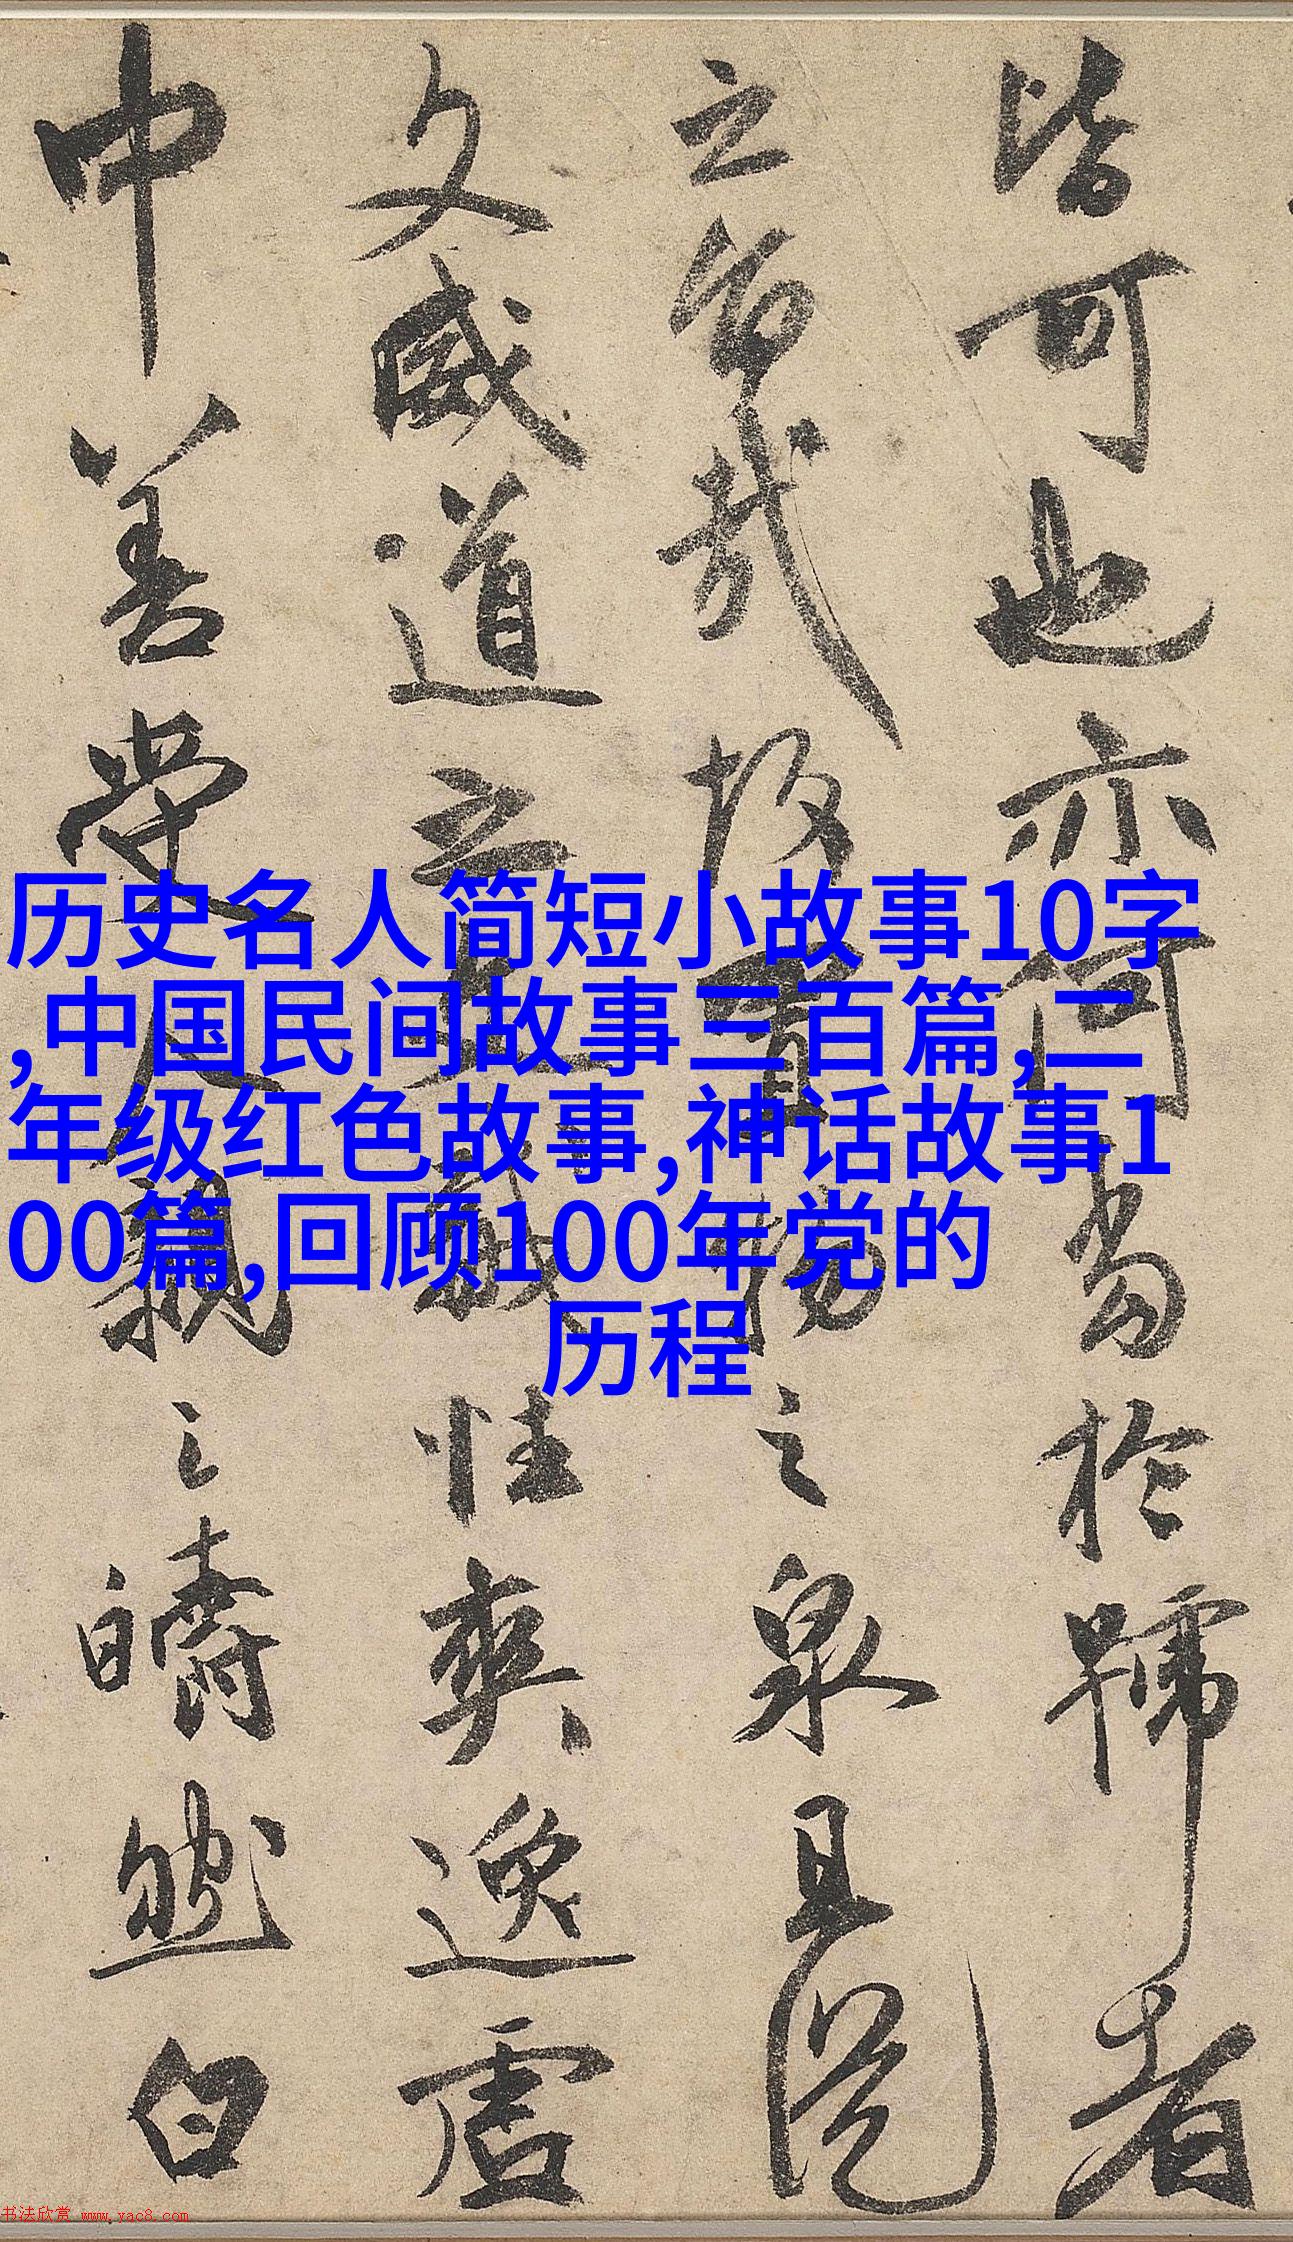 皆可也亦何當於歸者
立名哉故之泉具從
文威道之敏性爽逸虛
中善受人親之皭然白
历史名人简短小故事10字
,中国民间故事三百篇,二
年级红色故事,神话故事1
00篇,回顾100年党的
历程
书法欣赏 www.yac8.com